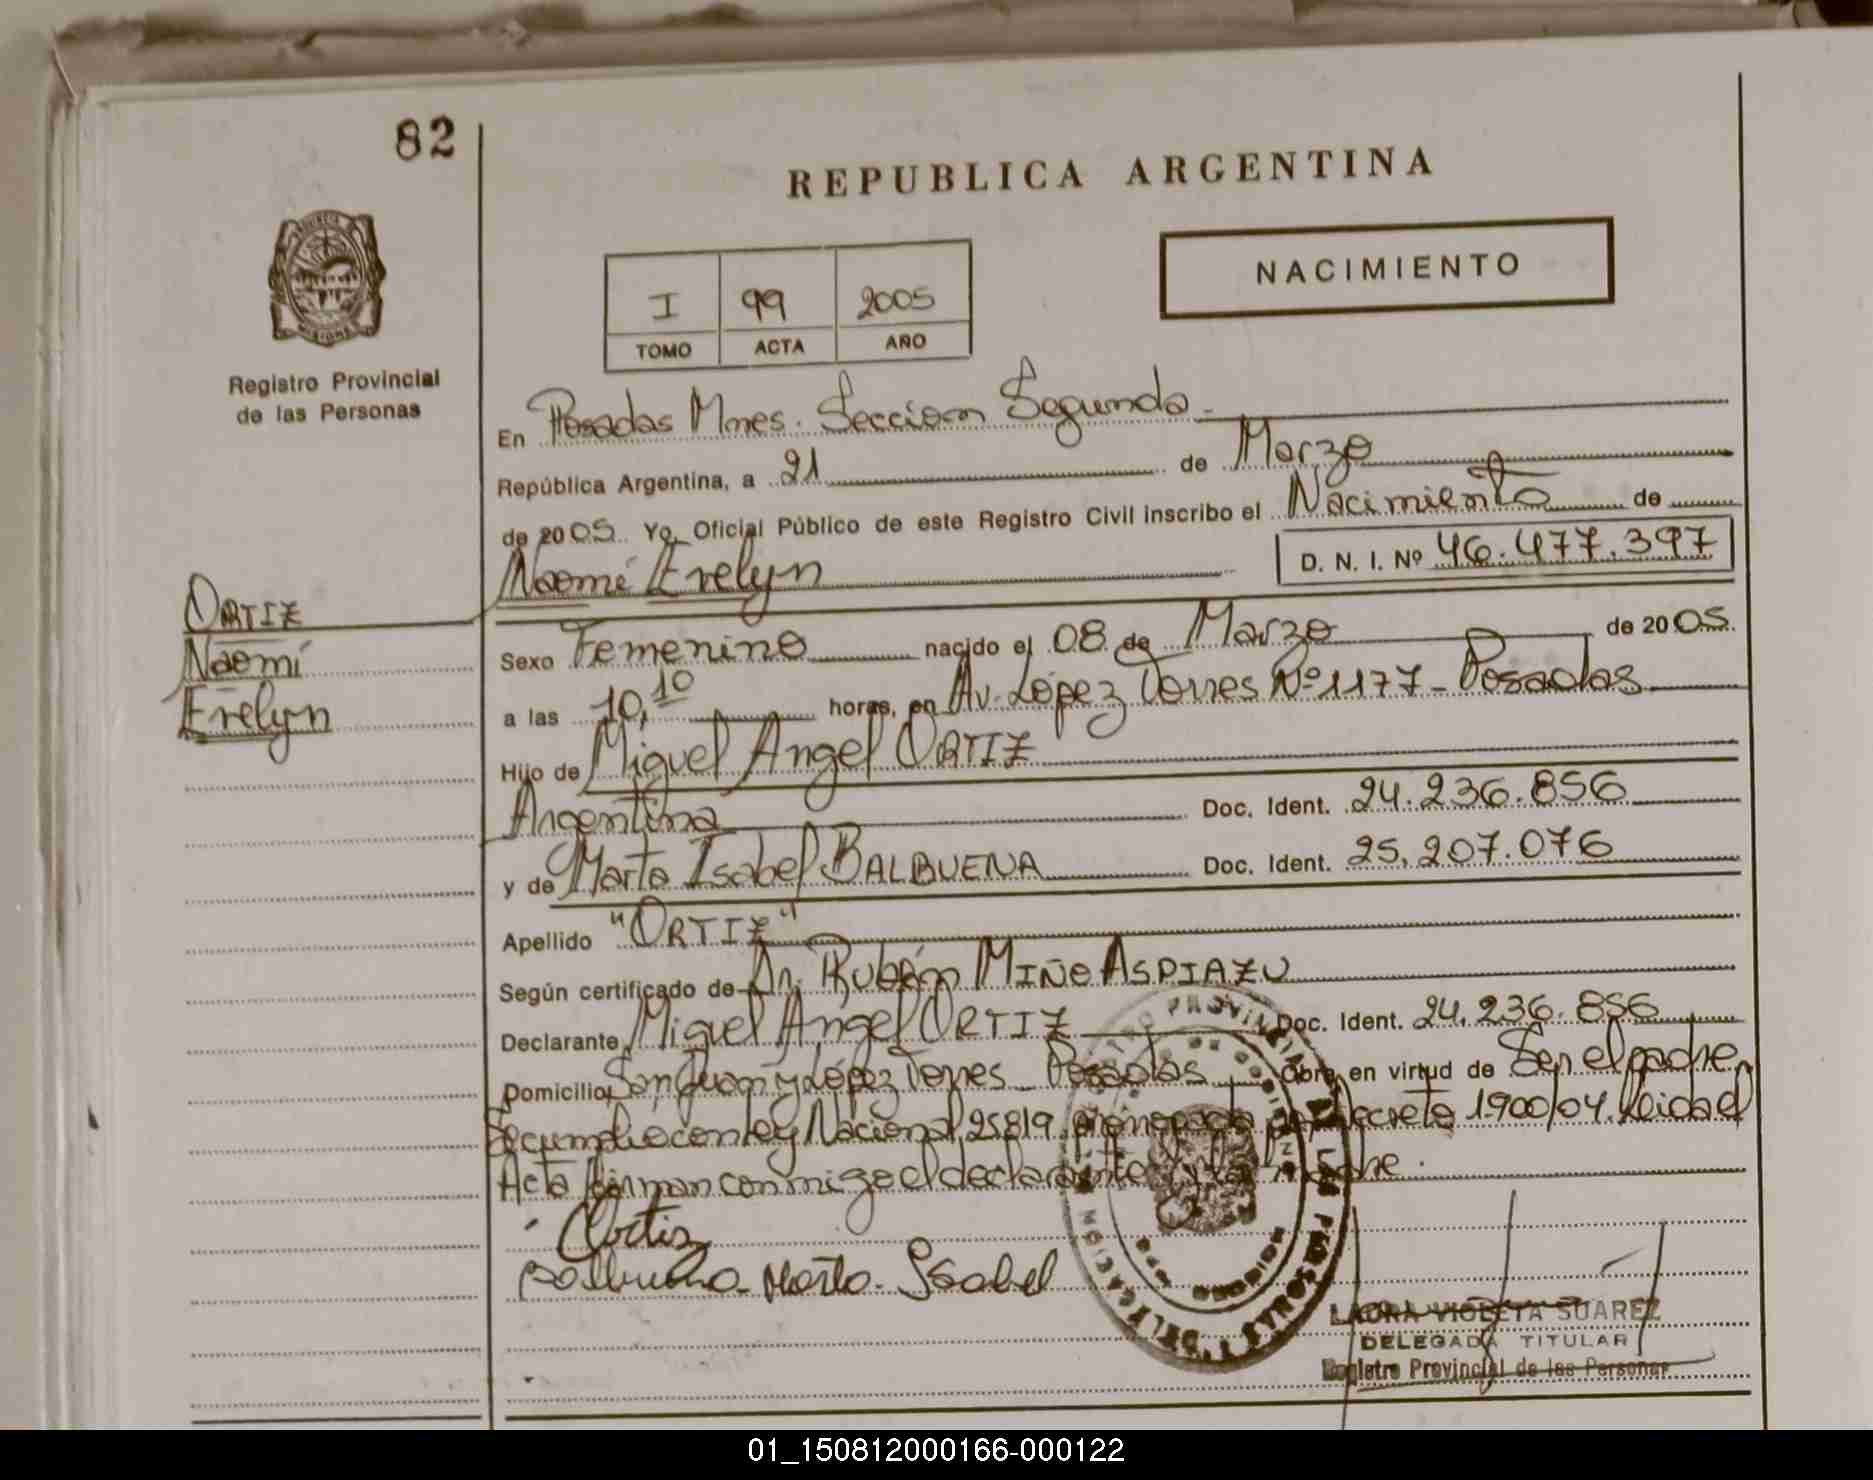 82
REPUBLICA ARGENTINA
NACIMIENTO
I 99 2005
TOMO ACTA AÑO
Registro Provincial
de las Personas
En Posadas Mnes. Seccion Segunda
República Argentina, a 21 de Marzo
de 2005 Yo, Oficial Público de este Registro Civil inscribo el Nacimiento de
Naomí Evelyn D. N. I. Nº 46.477.397
ORTIZ
Naomí
Evelyn
Sexo Femenino nacido el 08 de Marzo de 2005.
a las 10,10 horas, en Av. López Torres Nº 1177 - Posadas
Hijo de Miguel Angel ORTIZ
Argentina Doc. Ident. 24.236.856
y de Marta Isabel BALBUENA Doc. Ident. 25.207.076
Apellido "ORTIZ"
Según certificado de Dr. Rubén MIÑO ASPIAZU
Declarante Miguel Angel ORTIZ Doc. Ident. 24.236.856
Domicilio San Juan y López Torres Posadas Obra en virtud de Ser el padre
Se cumplio con Ley Nacional 25819 Decreto 1900/04. Leida el
Acta firman conmigo el declarante y la madre.
Ortiz
Balbuena Marta Isabel
LAURA VIOLETA SUAREZ
DELEGADA TITULAR
Registro Provincial de las Personas
01_150812000166-000122